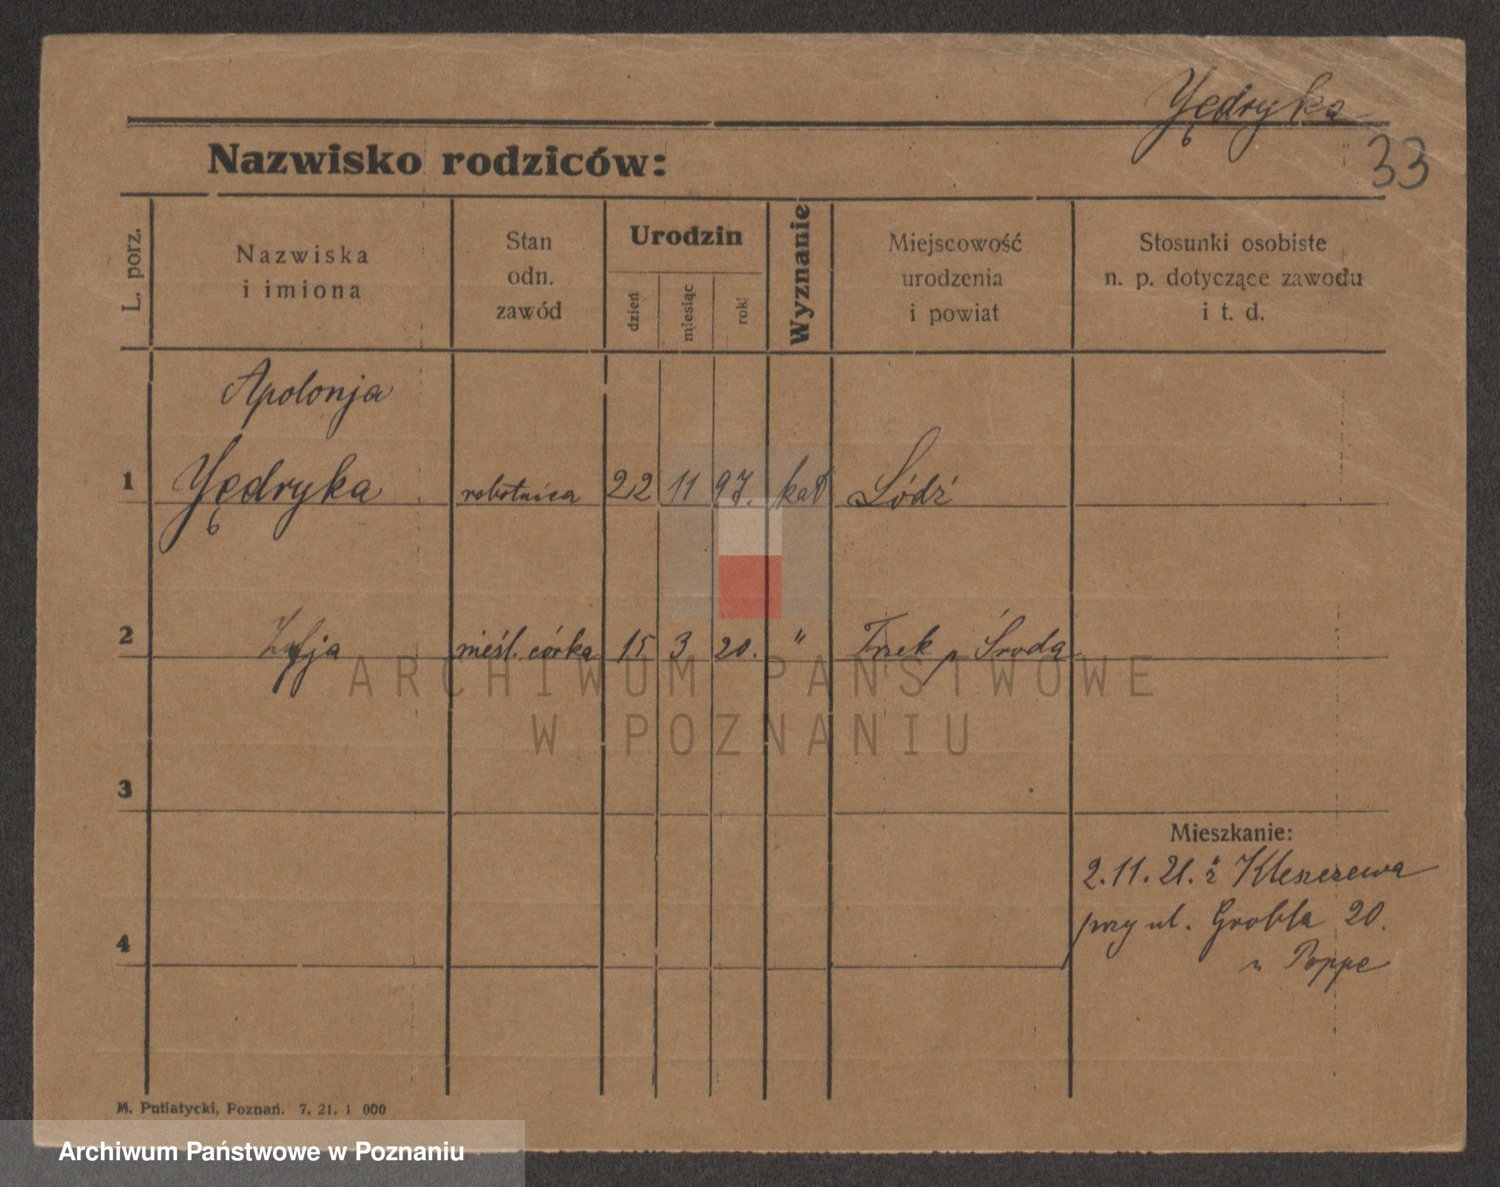 Yędryka
33
Nazwisko rodziców:
L. porz.
Nazwiska
i imiona
Stan
odn.
zawód
Urodzin
dzień
miesiąc
rok
Wyznanie
Miejscowość
urodzenia
i powiat
Stosunki osobiste
n. p. dotyczące zawodu
i t. d.
Apolonja
1 Yędryka robotnica 22 11 97. kat Łódź
2 Zofja nieśl. córka 15 3 20. " p Środa
ARCHIWUM PAŃSTWOWE
W POZNANIU
3
Mieszkanie:
2.11.21. z Kleszczewa
przy ul. Grobla 20.
4
u Poppe
M. Putiatycki, Poznań. 7. 21. 1 000
Archiwum Państwowe w Poznaniu